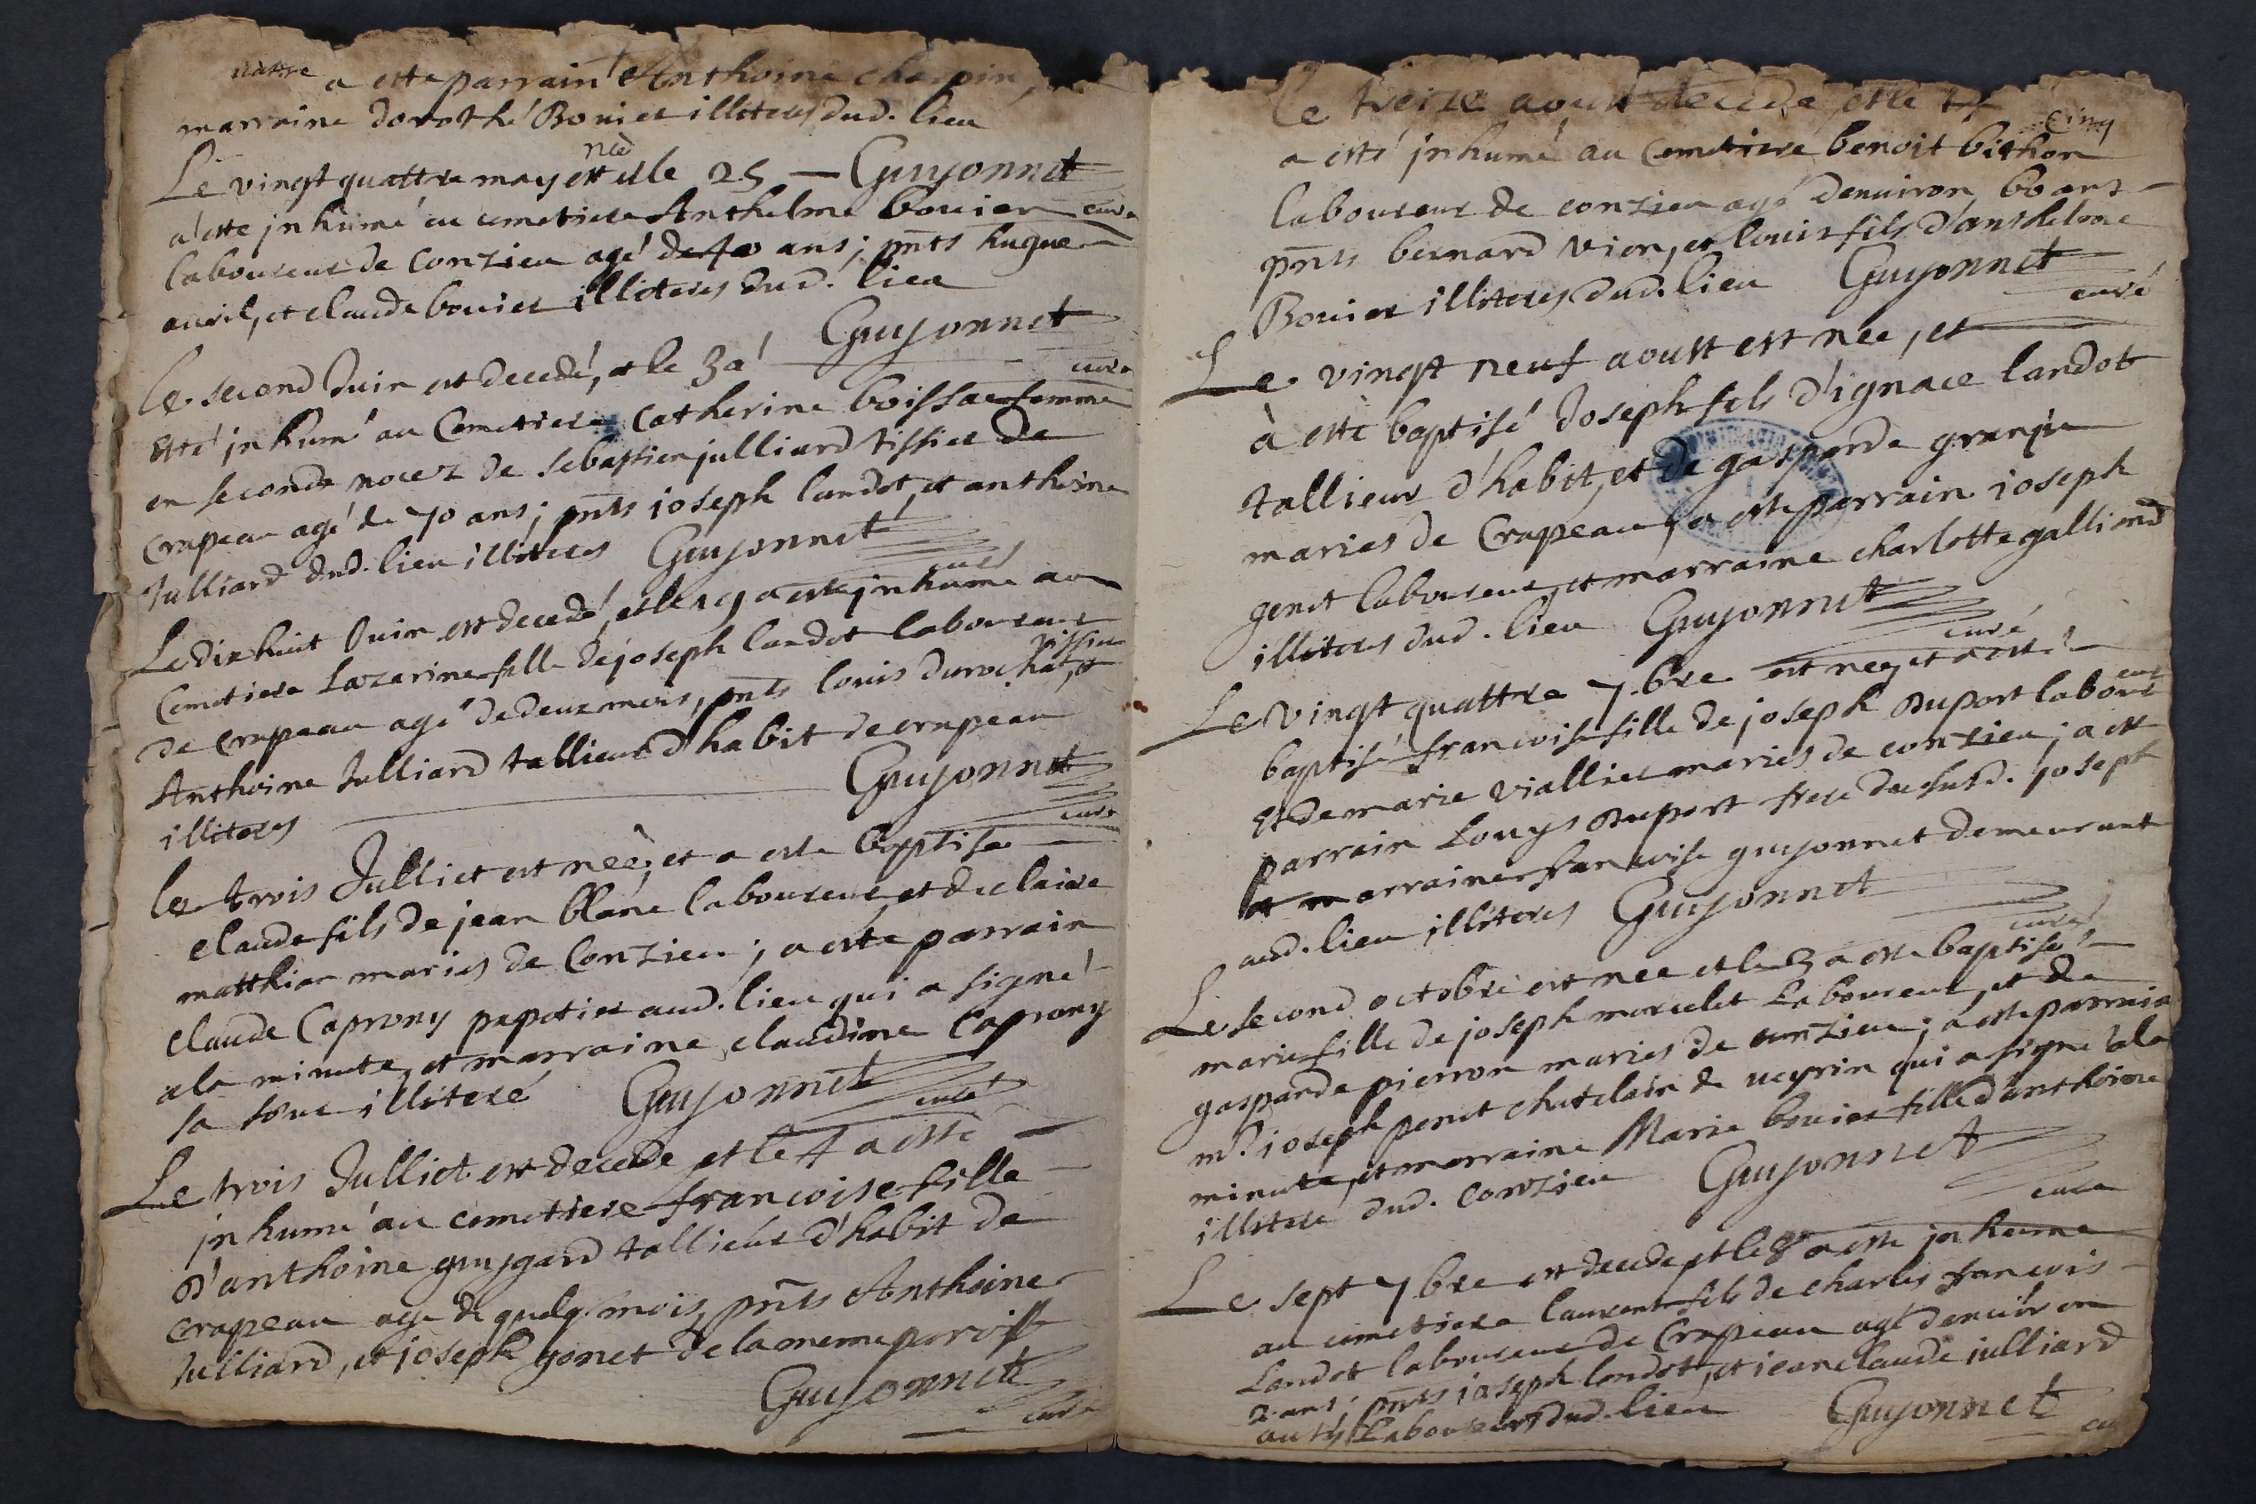 a este parrain Anthoine charpin,
marraine dorothé Bouier illiteres dud. lieu
Le vingt quattre may est et le 25 — Guyonnet
curé
a este jnhumé au cemetiere Anthelme bouier
laboureur de conzieu agé de 40 ans; pnts hugue
auril, et claude bouier illiteres dud. lieu
Guyonnet
curé
le second Juin est decedé, et le 3 a
esté jnhumé au Cemetiere Catherine boissac femme
en seconde nocez de sebastien julliard tissier de
Crapeau agé de 70 ans; pnts joseph landot, et anthoine
Julliard dud. lieu illiteres Guyonnet
curé
Le dix huit Juin est decedé, et le 19 a este jnhumé au
Cemetiere Lazarine fille de joseph landot laboureur
de crapeau agé de deux mois, pnts louis durochat, tissier et
Anthoine Julliard tallieur d'habit de crapeau
illiteres Guyonnet
curé
le trois Julliet est neè, et a este baptise
claude fils de jean blanc laboureur et de claire
matthier mariés de Conzieu; a esté parrain
claude Caprony papetier aud. lieu qui a signé
ala minute, et marraine claudine Caprony
sa sour illiteré Guyonnet
curé
Le trois Julliet est decede et le 4 a esté
jnhumé au cemetiere francoise fille
d'anthoine guygard tallieur d'habit de
crapeau age de quelq. mois, pnts Anthoine
Julliard, et joseph gonet de la meme paroisse
Guyonnet
curé
Le treize aoust decede, et le
a esté jnhumé au Cemetiere benoit bithon
laboureur de conzieu agé denuiron 60 ans
pnts bernard vion, et louis fils d'anthelme
Bouier illiteres dud. lieu Guyonnet
curé
Le vingt neuf aoust est née, et
à esté baptisé Joseph fils d'ignace landot
tallieur d'habit, et de gasparde granju
mariés de Crapeau, a este parrain joseph
genet laboureur, et marraine charlotte galliend
illiteres dud. lieu Guyonnet
curé
Le vingt quattre 7.bre est neé, et a esté
baptisé francoise fille de joseph Duport laboureur
et de marie viallier mariés de conzieu; a esté
parrain Louys duport frere du susd. joseph
et marraine francoise guyonnet demeurant
aud. lieu illiteres Guyonnet
curé
Le second octobre est neé et le 3 a este baptisé
marie fille de joseph marcelet Laboureur, et de
gasparde pierron mariés de conzieu; a este parrain
mr. joseph penet chatelain de veyrin qui a signé à la
minute, et marraine Marie bouier fille d'anthoine
illiteré dud. conzieu Guyonnet
curé
Le sept 7.bre est decede, et le 8 a este jnhumé
au cimetiere laurent fils de charles francois
Landot laboureur de Crapeau agé denuiron
2 ans; pnts joseph landot, et jean claude julliard
Laboureurs dud. lieu Guyonnet